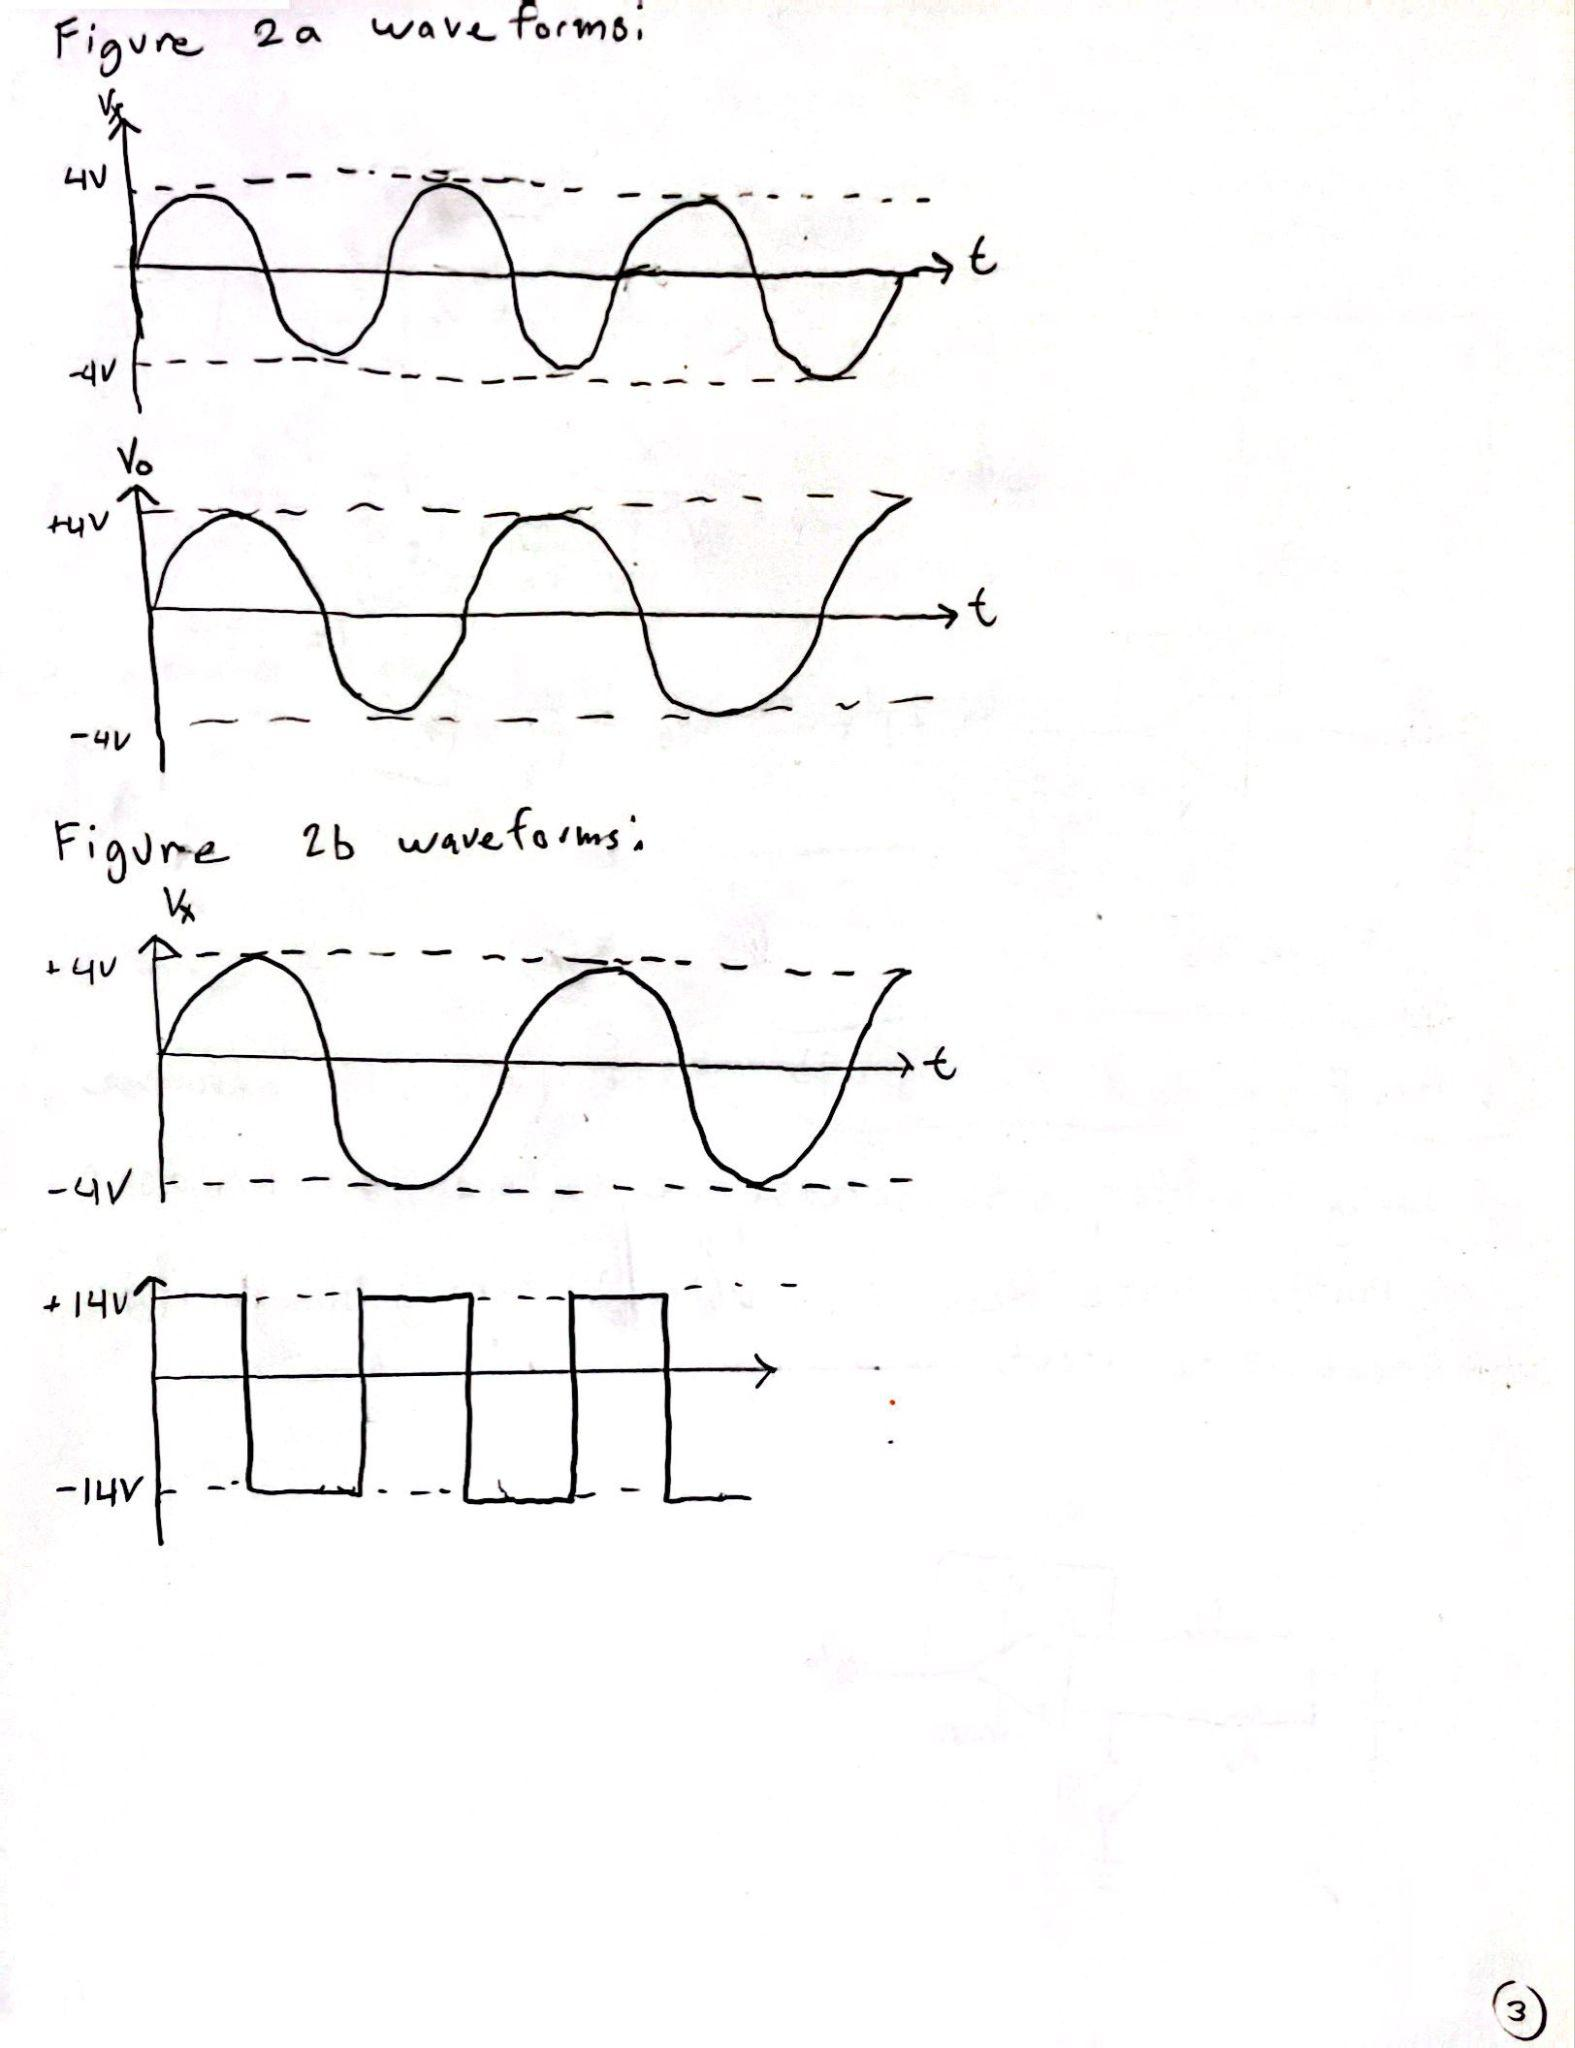 Figure 2a waveforms:
Vx
4V
t
-4V
Vo
+4V
t
-4V
Figure 2b waveforms:
Vx
+4V
t
-4V
+14V
-14V
3